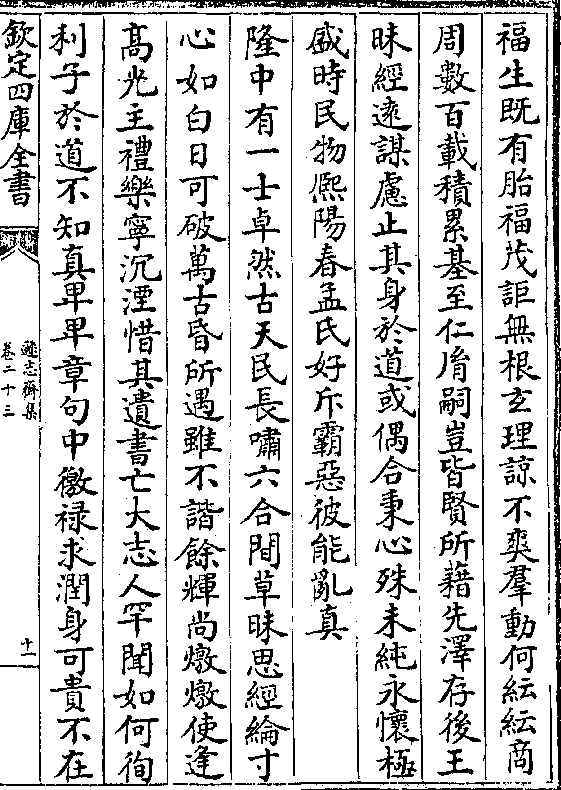 福生既有胎福茂詎無根玄理諒不爽羣動何紜紜商
周數百載積累基至仁胤嗣豈皆賢所藉先澤存後王
昧經逺謀慮止其身於道或偶合秉心殊未純永懷極
盛時民物熈陽春孟氏好斥霸惡彼能亂真
隆中有一士卓然古天民長嘯六合間草昧思經綸寸
心如白日可破萬古昏所遇雖不諧餘輝尚燉燉使逢
髙光主禮樂寧沉湮惜其遺書亡大志人罕聞如何徇
利子於道不知真卑卑章句中徼禄求潤身可貴不在
欽定四庫全書
遜志齋集
卷二十三
十一